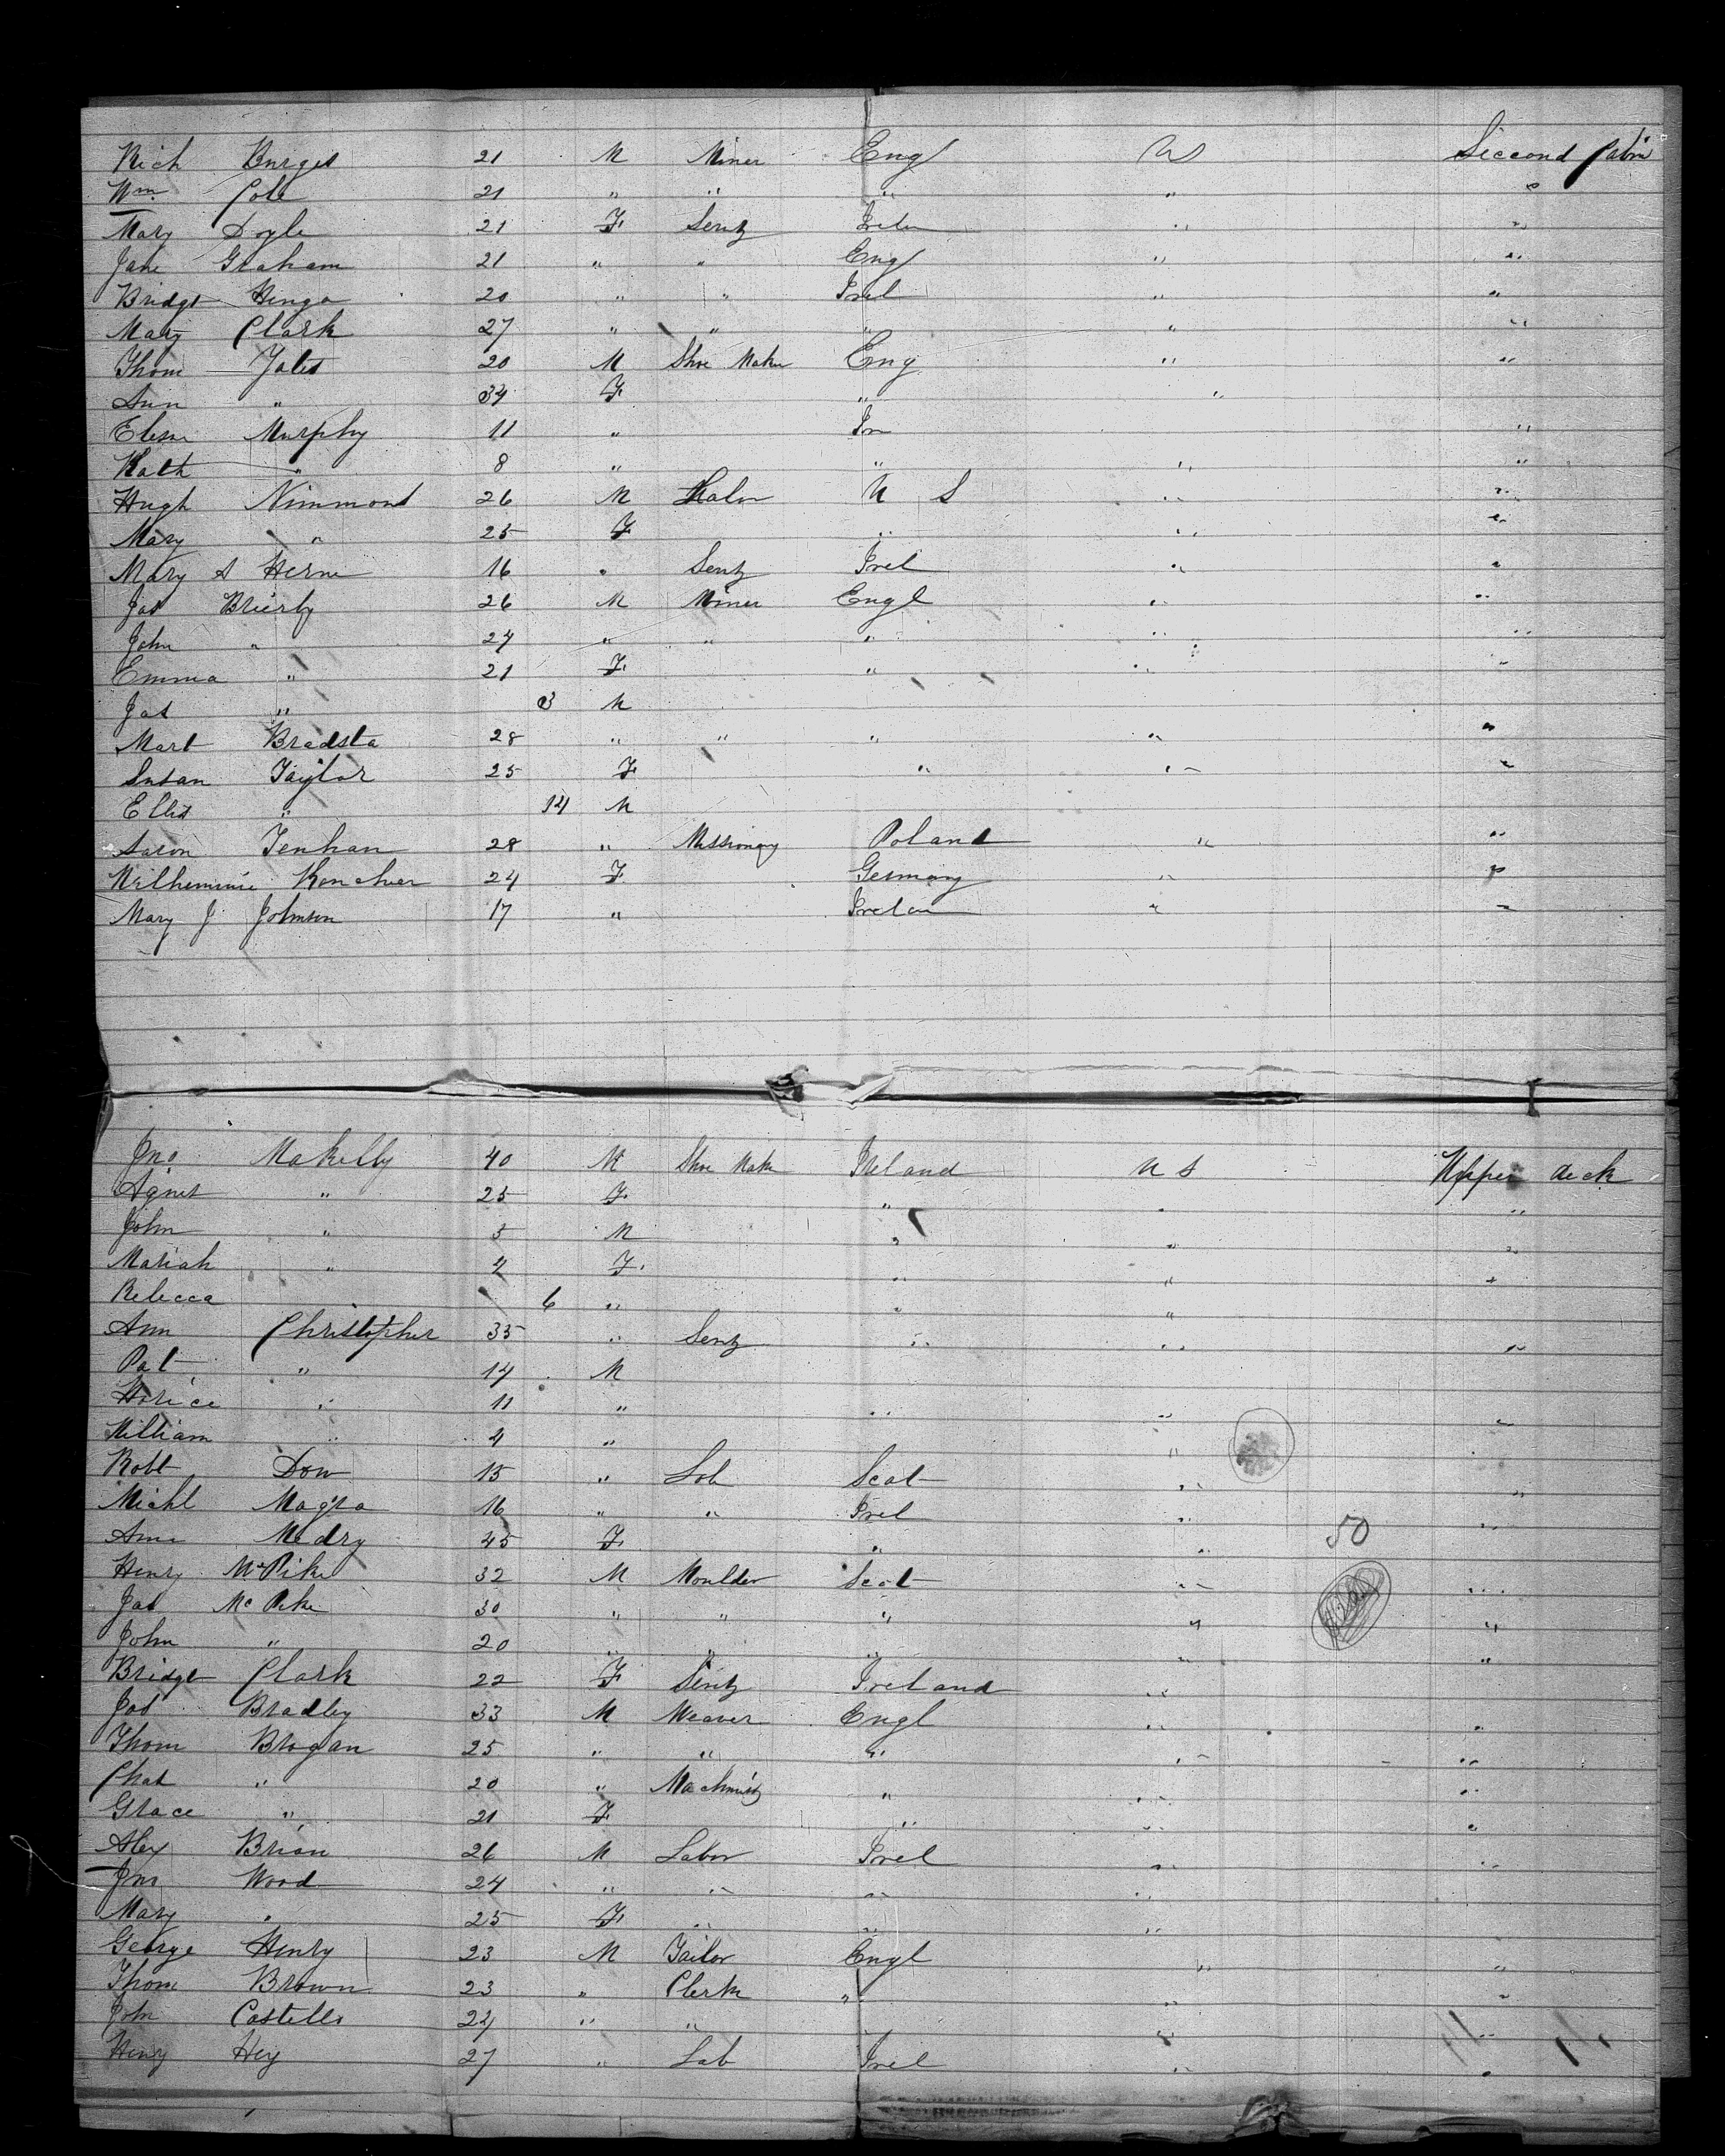 Rich Burges 21 M Miner Engl US Seccond Cabin
Wm. Cole 21 " " " " "
Mary Doyle 21 F Sentz Irelan " "
Jane Graham 21 " " Engl " "
Bridgt Henga 20 " " Irel " "
Mary Clark 27 " " " " "
Thom Yates 20 M Shoe Maker Eng " "
Ann " 34 F " "
Ellen Murphy 11 " Ire "
Kath " 8 " " " "
Hugh Nimmond 26 M Labor U S " "
Mary " 25 F " " "
Mary A Herne 16 " Sentz Irel " "
Jas Brierly 26 M Miner Engl " "
John " 24 " " " " "
Emma " 21 F " " "
Jas " 3 M
Mart Bradsta 28 " " " " "
Susan Taylor 25 F " " "
Ellis " 14 M
Aaron Tenhan 28 " Missionary Poland " "
Wilhemine Konchner 24 F Germany " "
Mary J Johnson 17 " Irelan " "
Jno Makelly 40 M Shoe Make Ireland U S Upper deck
Agnes " 25 F " " "
John " 5 M " " "
Mariah " 4 F " " "
Rebecca 6 " " "
Ann Christopher 35 " Sentz " " "
Pat " 14 M
Horice " 11 " " " "
William " 4 " "
Robt Dow 15 " Lab Scot " "
Michl Magra 16 " " Irel " "
Ann Medry 45 F " " 50
Henry McPike 32 M Moulder Scot " "
Jas McPike 30 " " " " "
John " 20 " " " " "
Bridgt Clark 22 F Sentz Ireland "
Jas Bradley 33 M Weaver Engl " "
Thom Brogan 25 " " " " "
Chas " 20 " Machinist " " "
Grace " 21 F " " "
Alex Brian 26 M Labor Irel " "
Jno Wood 24 " " " "
Mary " 25 F " " "
George Henry 23 M Tailor Engl " "
Thom Brown 23 " Clerk " " "
John Costello 24 " " " "
Henry Hey 27 " Lab Irel " "